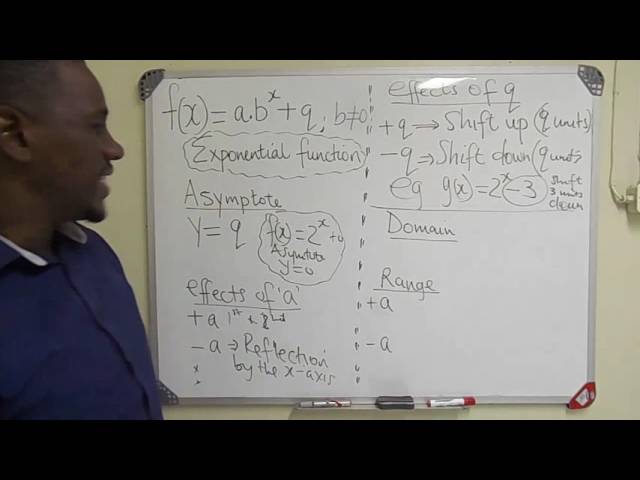 f(x) = a.b^x + q ; b≠0
Exponential function
Asymptote
y = q
f(x) = 2^x + 0
Asymptote
y = 0
effects of 'a'
+a 1st &
-a ⇒ Reflection
by the x-axis
effects of q
+q ⇒ Shift up (q units)
-q ⇒ Shift down (q units
eg g(x) = 2^x - 3
shift
3 units
down
Domain
Range
+a
-a